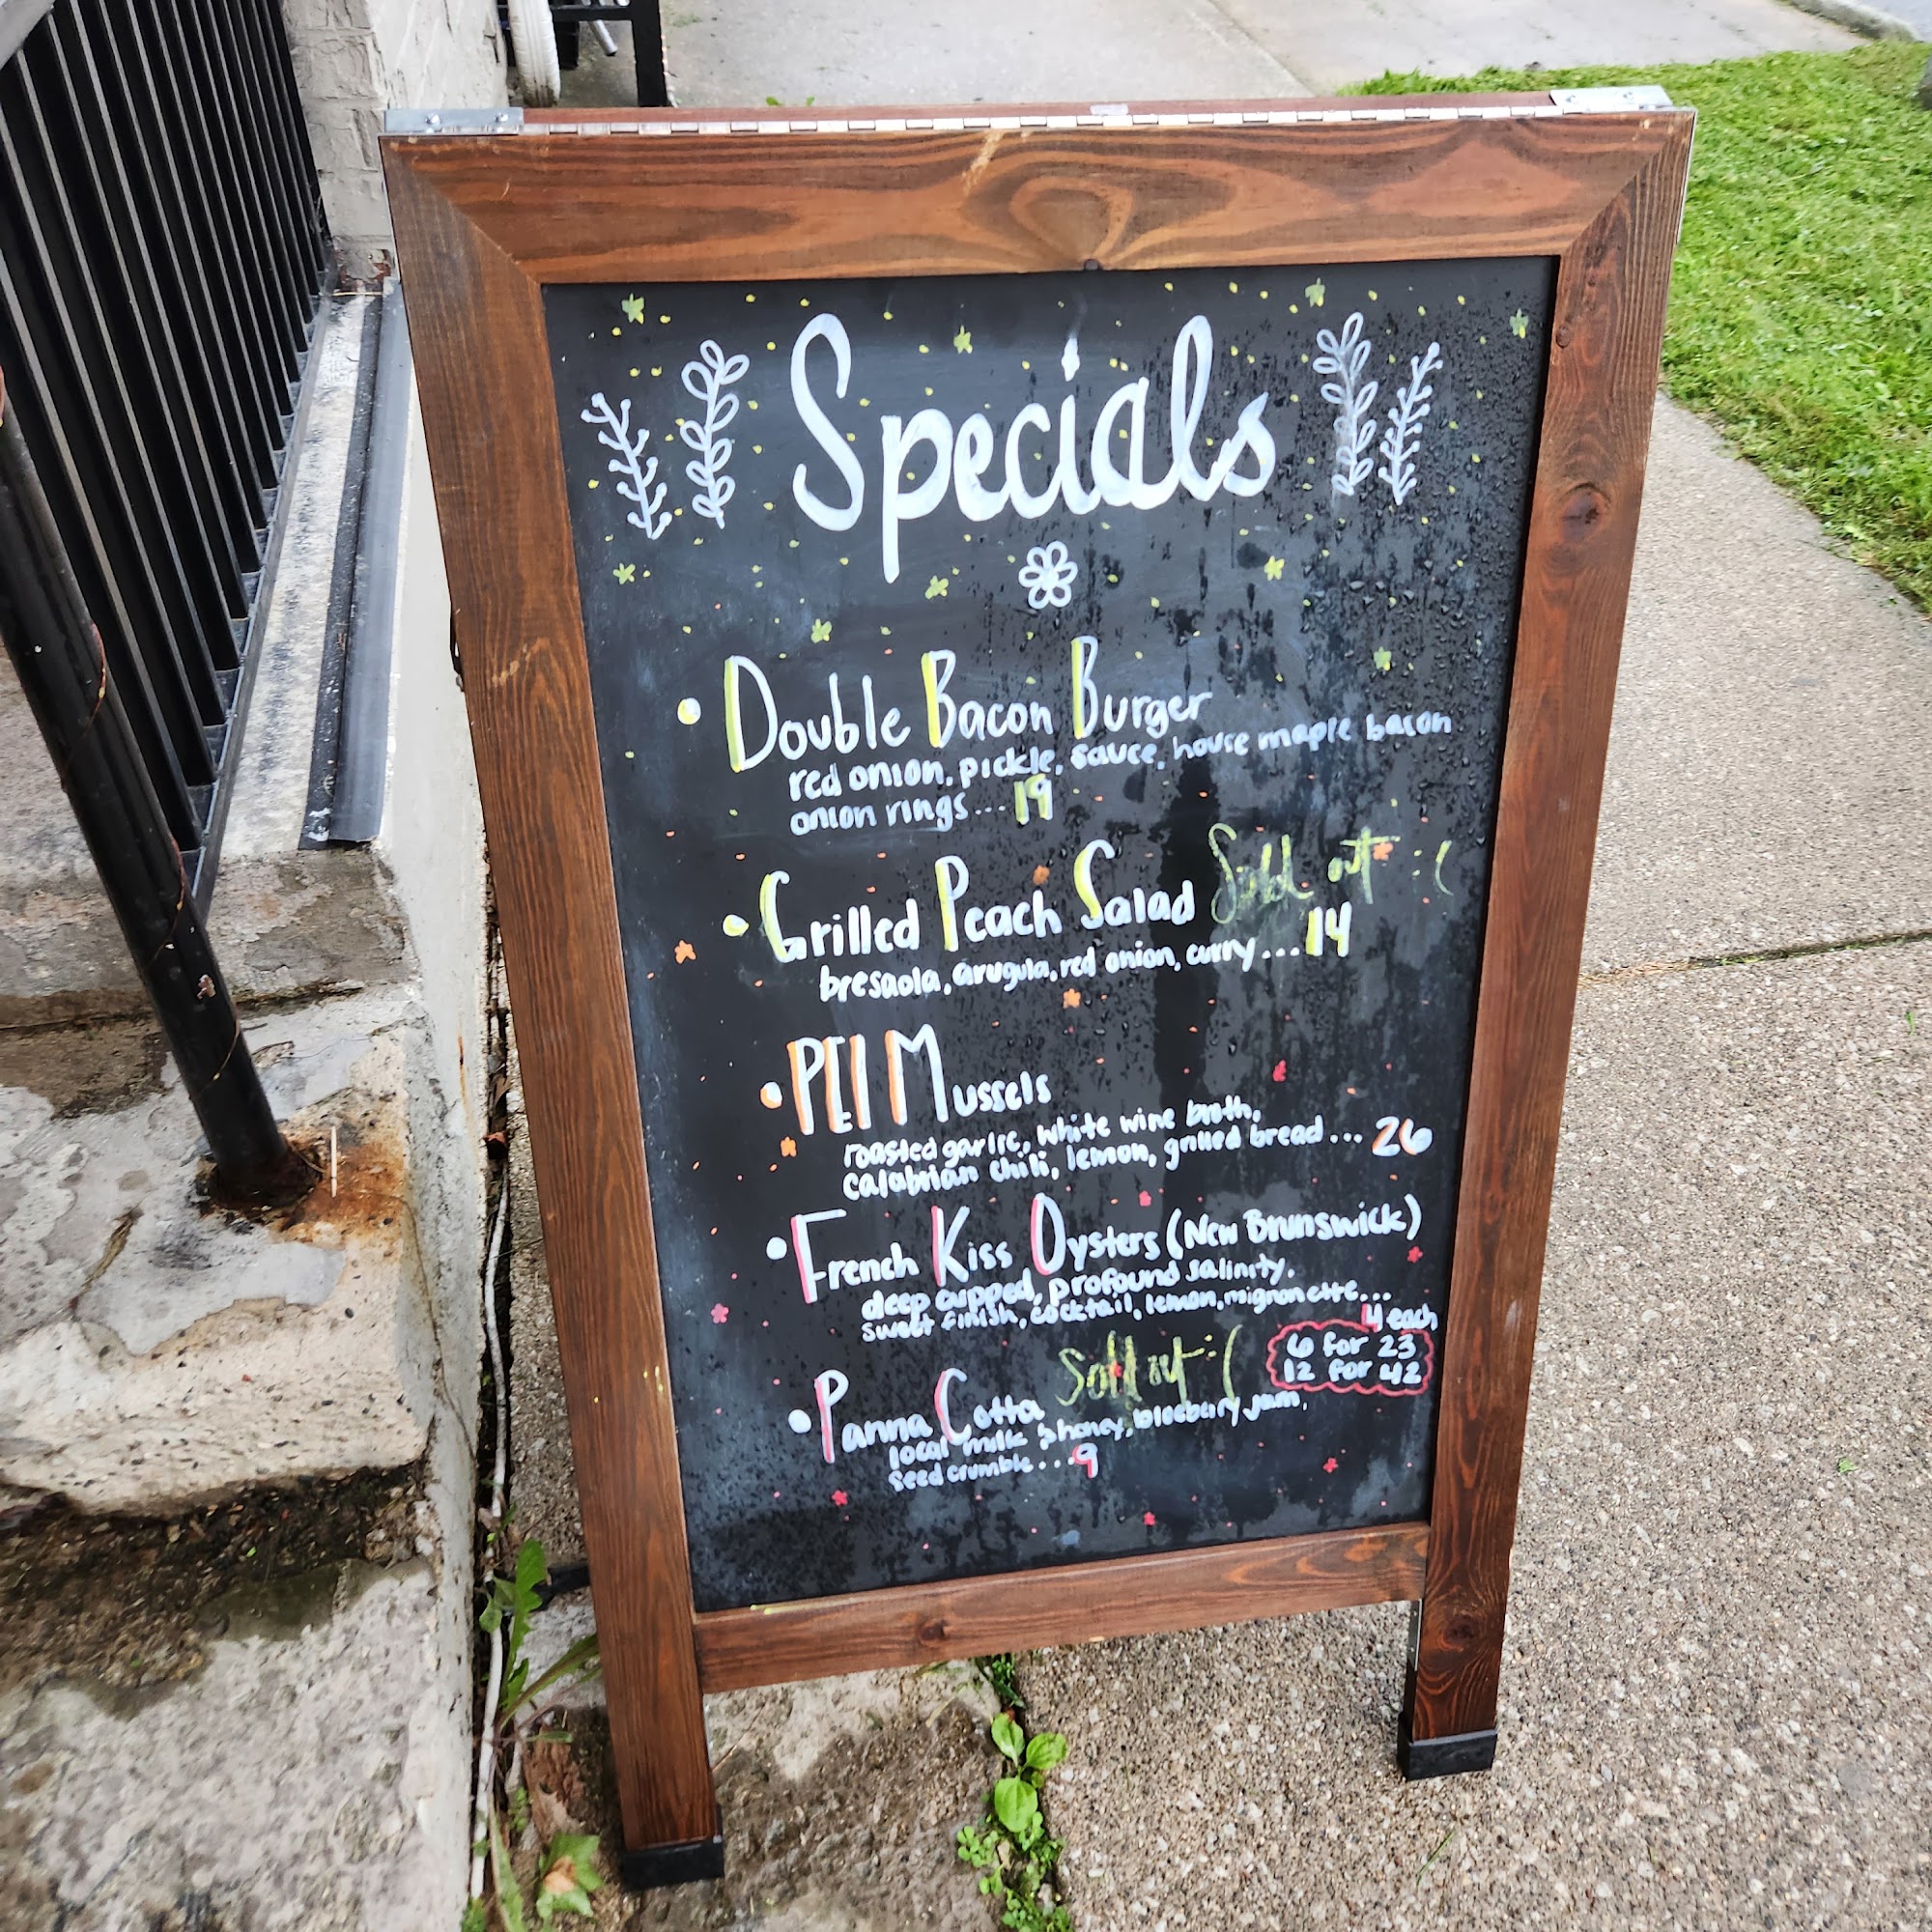 Specials
Double Bacon Burger
red onion, pickle, sauce, house maple bacon
onion rings...19
Grilled Peach Salad Sold out :(
bresaola, arugula, red onion, curry...14
PEI Mussels
roasted garlic, white wine broth,
calabrian chili, lemon, grilled bread...26
French Kiss Oysters (New Brunswick)
deep cupped, profound salinity,
sweet finish, cocktail, lemon, mignonette...
4 each
6 for 23
12 for 42
Panna Cotta Sold out :(
local milk & honey, blueberry jam,
seed crumble...9